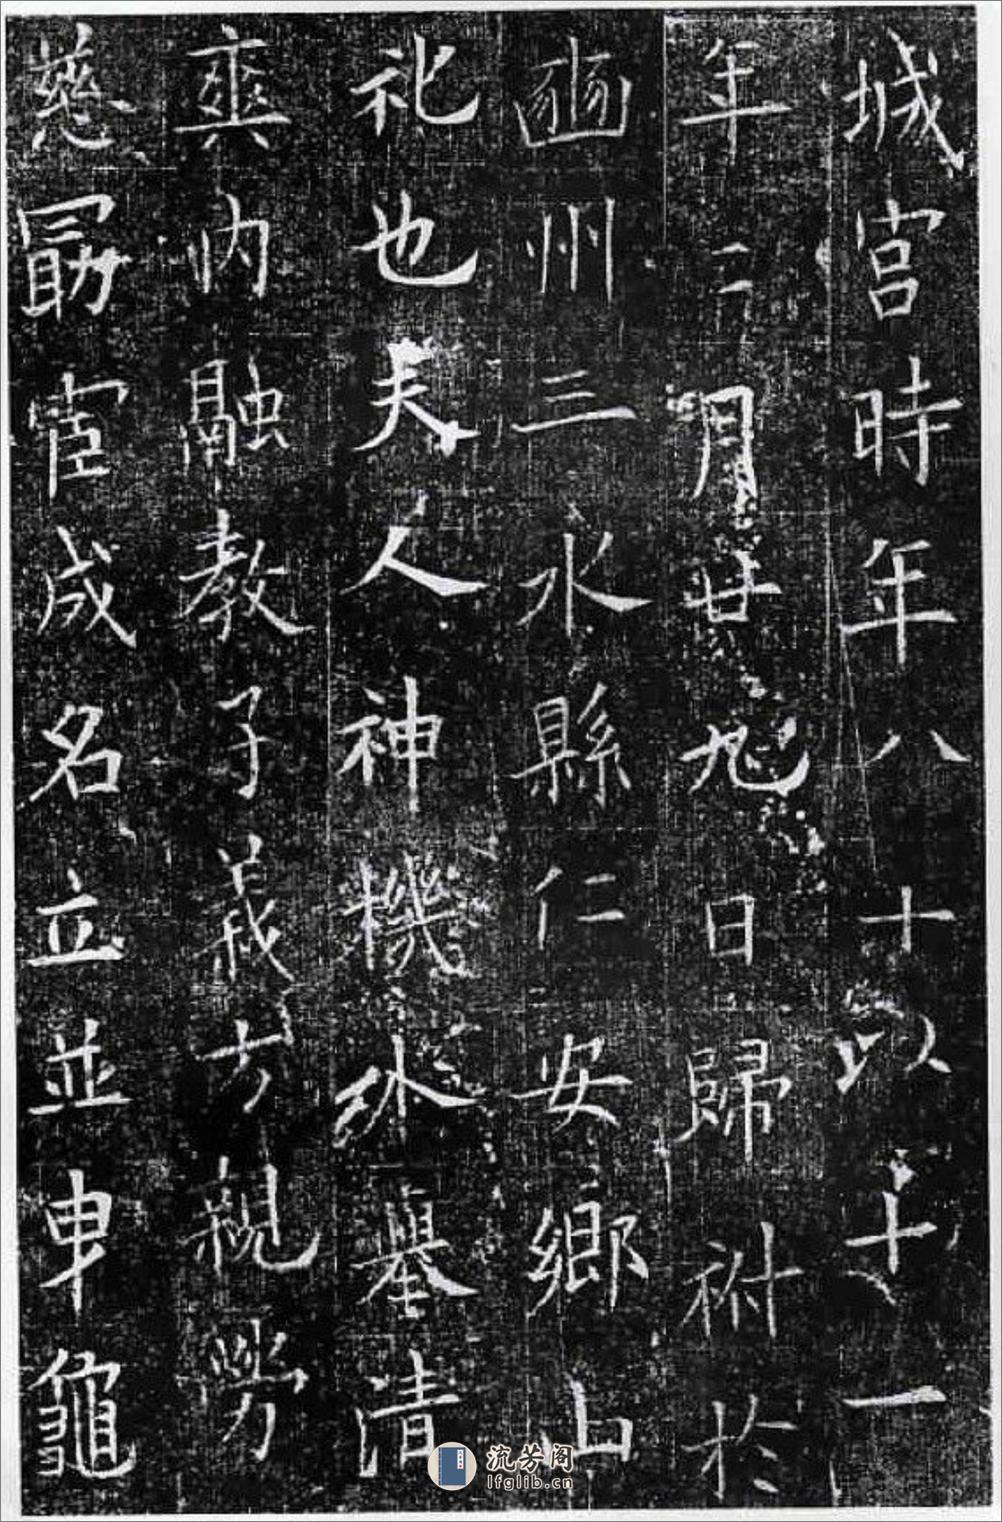 城宮時年八十以十一
年月廿九日歸祔於
豳州三水縣仁安鄉山
礼也夫人神機外舉清
爽內融教子義方親勞
慈勗宦成名立並車龜
流芳阁
lfglib.cn